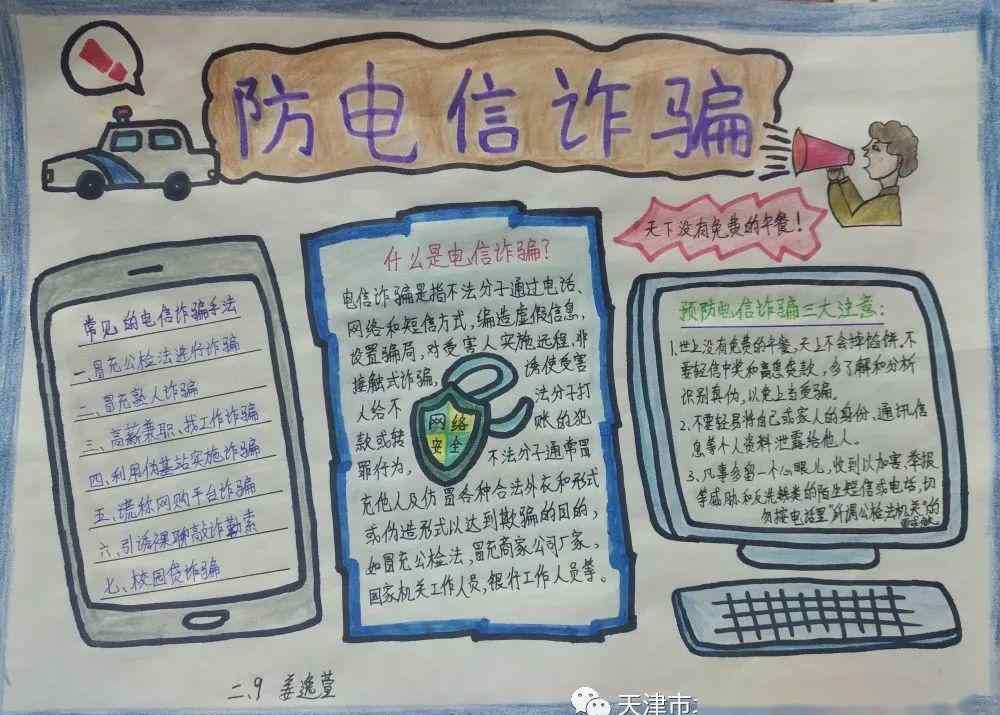 防电信诈骗
天下没有免费的午餐!
常见的电信诈骗手法
一、冒充公检法进行诈骗
二、冒充熟人诈骗
三、高薪兼职、找工作诈骗
四、利用伪基站实施诈骗
五、谎称网购平台诈骗
六、引诱裸聊敲诈勒索
七、校园贷诈骗
什么是电信诈骗?
电信诈骗是指不法分子通过电话、
网络和短信方式,编造虚假信息,
设置骗局,对受害人实施远程、非
接触式诈骗, 诱使受害
人给不 法分子打
款或转 账的犯
罪行为, 不法分子通常冒
充他人及仿冒各种合法外衣和形式
或伪造形式以达到欺骗的目的,
如冒充公检法,冒充商家公司厂家,
国家机关工作人员,银行工作人员等。
网络
安全
预防电信诈骗三大注意:
1.世上没有免费的午餐,天上不会掉馅饼,不
要轻信中奖和高息贷款,多了解和分析
识别真伪,以免上当受骗。
2.不要轻易将自己或家人的身份、通讯信
息等个人资料泄露给他人。
3.凡事多留一个心眼儿,收到以加害、举报
等威胁和反洗钱类的陌生短信或电话,切
勿按电话里"所谓公检法机关"的
二、9 姜逸萱
天津市